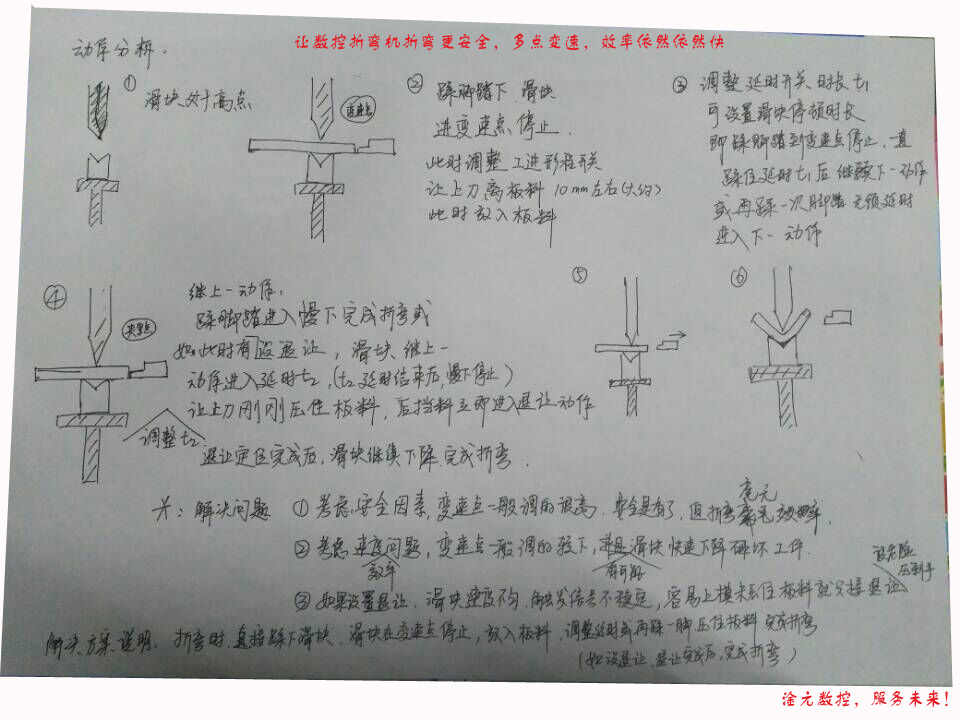 让数控折弯机折弯更安全，多点变速，效率依然依然快
动序分析。
① 滑块处于高点
变速点
② 踩脚踏下滑块
进变速点停止.
此时调整工进形程开关
让上刀离板料10mm左右(大约)
此时放入板料
③ 调整延时开关时长t1
可设置滑块停顿时长
即踩脚踏到变速点停止.一直
踩住延时t1后继续下一动作
或再踩一次脚踏无须延时
进入下一动作
④ 继上一动作.
踩脚踏进入慢下完成折弯或
夹紧点
如此时有设退让，滑块继上一
动序进入延时t2,(t2延时结束后,慢下停止)
让上刀刚刚压住板料，后挡料立即进入退让动作
调整t2
退让定位完成后,滑块继续下降.完成折弯.
⑤
⑥
解决问题 ①考虑安全因素,变速点一般调的很高.安全是有了,但折弯毫无效率.
毫无
②考虑速度问题,变速点一般调的较下,滑块快速下降碰坏工件.
效率
有可能
③如果设置退让.滑块速度不匀.触发信号不稳定,容易上模未压住板料就直接退让
很危险
压到手
解决方案说明. 折弯时.直接踩下滑块.滑块在变速点停止,放入板料,调整延时或再踩一脚压住板料完成折弯
(如设退让.退让完成后,完成折弯)
淦元数控，服务未来!